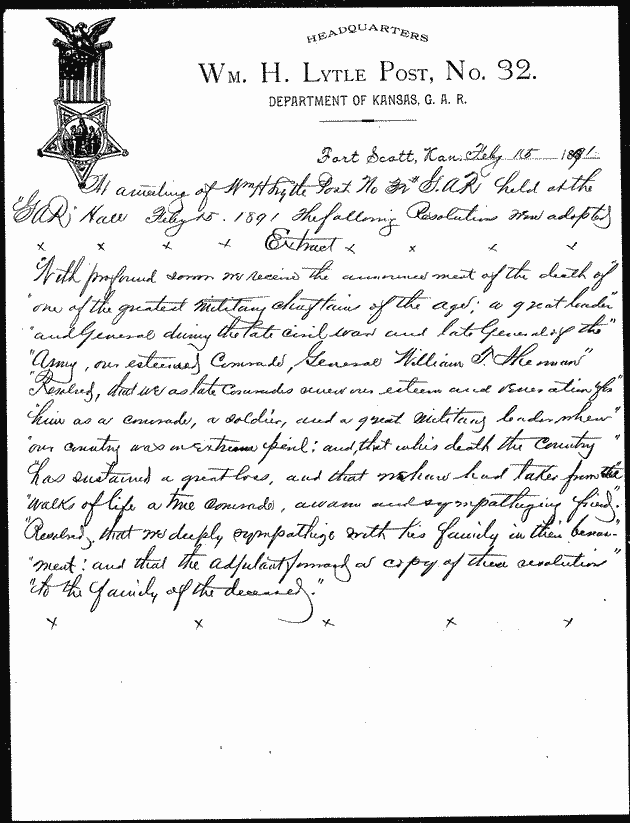 HEADQUARTERS
WM. H. LYTLE POST, NO. 32.
DEPARTMENT OF KANSAS, G. A. R.
Fort Scott, Kan. Feby 15 1891.
At a meeting of Wm H Lytle Post No 32 G.A.R held at the
"G.A.R." Hall Feby 15. 1891 the following Resolutions were adopted
x x x x Extract x x x x
"With profound sorrow we receive the announcement of the death of"
"one of the greatest military chieftains of the age; a great leader"
"and General during the late civil war and late General of the"
"Army, our esteemed Comrade, General William T. Sherman"
"Resolved, that we as late comrades renew our esteem and veneration for"
"him as a comrade, a soldier, and a great military leader when"
"our country was in extreme peril; and that in his death the country"
"has sustained a great loss, and that we have had taken from the"
"walks of life a true comrade, a warm and sympathizing friend."
"Resolved, that we deeply sympathize with his family in their bereave-"
"ment; and that the adjutant forward a copy of these resolution"
"to the family of the deceased."
x x x x x